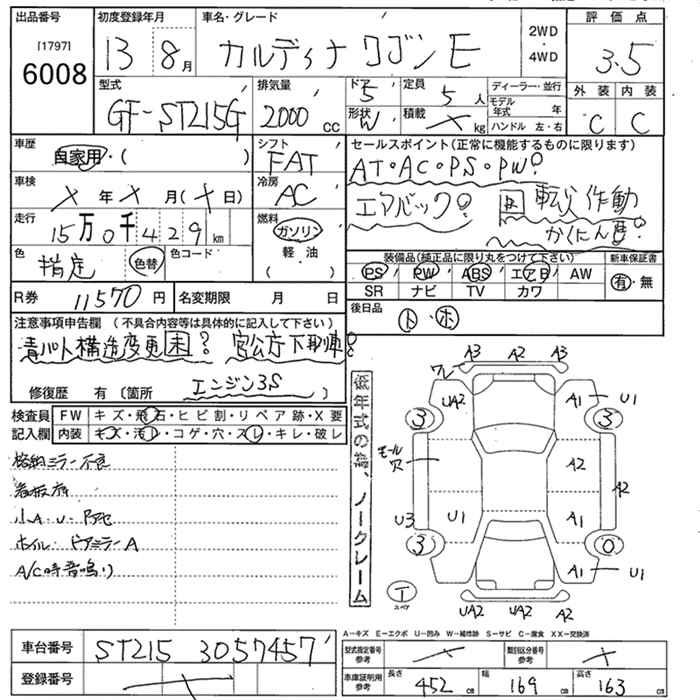 出品番号 初度登録年月 車名・グレード 2WD 評価点
[1797]
6008 13 8月 カルディナ ワゴン E 4WD 3.5
型式 排気量 ドア 5 定員 5人 ディーラー・並行 外装 内装
GF-ST215G 2000cc 形状 W 積載 kg モデル年式 年 C C
ハンドル 左・右
車歴 自家用・( ) シフト FAT セールスポイント(正常に機能するものに限ります)
AT・AC・PS・PW
車検 × 年 × 月(× 日) 冷房 AC エアバック 転父作動
かくにん
走行 15万0千429km 燃料 ガソリン
軽油
( )
色 指定 色替 色コード 装備品(純正品に限り丸をつけて下さい) 新車保証書
PS PW ABS エアB AW 有・無
SR ナビ TV カワ
R券 11570円 名変期限 月 日 後日品 ト・ホ
注意事項申告欄 (不具合内容等は具体的に記入して下さい)
構造変更 官公庁下取車
修復歴 有 〔箇所 エンジン3S 〕
検査員 FW キズ・飛石・ヒビ割・リペア跡・X要
記入欄 内装 キズ・汚レ・コゲ・穴・スレ・キレ・破レ
格納ミラー不良
看板府
小A・U・
ホイル・ドアミラーA
A/C時音鳴り
低年式の為、ノークレーム
A3 A2 A3
ワレ UA2 A1 U1
3 3
モール穴 A2
A2
U3 U1 A1
3 0
A1 U1
T
スペア
UA2 UA2 UA2
A-キズ E-エクボ U-凹み W-補修跡 S-サビ C-腐食 XX-交換済
車台番号 ST215 3057457
型式指定番号 参考 × 類別区分番号 参考 ×
登録番号
車庫証明用 参考 長さ 452cm 幅 169cm 高さ 163cm